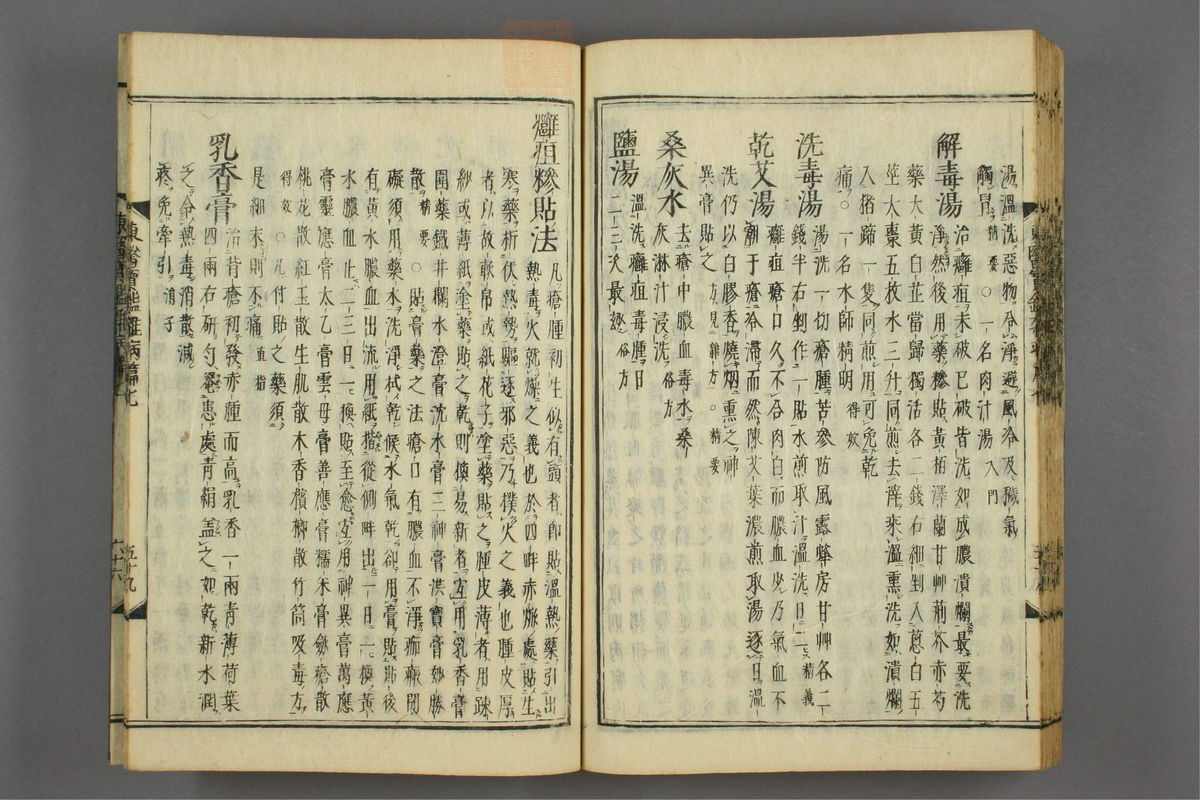 湯溫洗惡物令淨避風冷及穢氣
觸冒精要○一名肉汁湯入門
解毒湯治癰疽未破已破皆洗如成膿潰爛最要洗
淨然後用藥糝貼黃栢澤蘭甘艸荊芥赤芍
藥大黃白芷當歸獨活各二錢右細剉入葱白五
莖大棗五枚水三升同煎去滓乘溫熏洗如潰爛
入猪蹄一隻同煎用可免乾
痛○一名水師精明得效
洗毒湯湯洗一切瘡腫苦參防風露蜂房甘艸各二
錢半右剉作一貼水煎取汁溫洗日二精義
乾艾湯癰疽瘡口久不合肉白而膿血少乃氣血不
潮于瘡冷滯而然陳艾葉濃煎取湯逐日溫
洗仍以白膠香燒烟熏之神
異膏貼之方見雜方○精要
桑灰水去瘡中膿血毒水桑
灰淋汁浸洗俗方
鹽湯溫洗癰毒腫日
二三次最妙俗方
癰疽糝貼法凡瘡腫初生似有頭者卽貼溫熱藥引出
熱毒火就燥之義也於四畔赤焮處貼生
寒藥析伏熱勢驅逐邪惡乃撲火之義也腫皮厚
者以故軟帛或紙花子塗藥貼之腫皮薄者用疎
紗或薄紙塗藥貼之乾則換易新者宜用乳香膏
圍藥鐵井欄水澄膏沈水膏三神膏洪寶膏妙勝
散精要○貼膏藥之法瘡口有膿血不淨痂瘢閉
礙須用藥水洗淨拭乾候水氣乾却用膏貼貼後
有黃水膿血出流用紙揩從側畔出一日一換黃
水膿血止二三日一換貼至愈宜用神異膏萬應
膏靈應膏太乙膏雲母膏善應膏糯米膏斂瘡散
桃花散紅玉散生肌散木香檳榔散竹筒吸毒方
得效○凡付貼之藥須
是細末則不痛直指
乳香膏治背瘡初發赤腫而高乳香一兩靑薄荷葉
四兩右研勻罨患處靑絹盖之如乾新水潤
之令熱毒消散減
疼免牽引涓子
東醫寶鑑雜病篇七
五十九
六十六